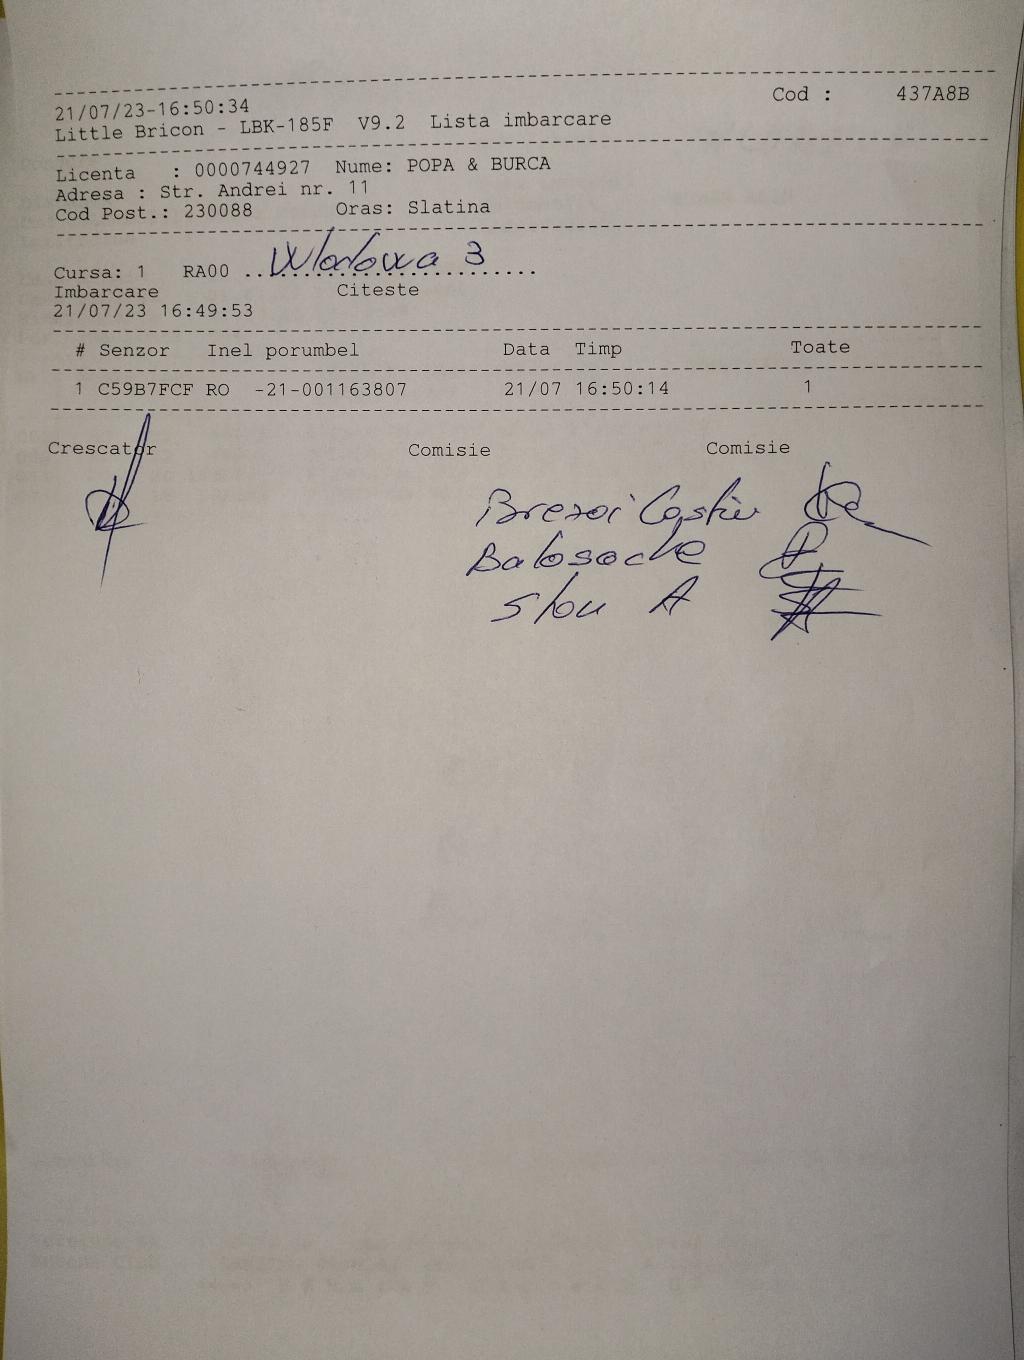 21/07/23-16:50:34 Cod : 437A8B
Little Bricon - LBK-185F V9.2 Lista imbarcare
Licenta : 0000744927 Nume: POPA & BURCA
Adresa : Str. Andrei nr. 11
Cod Post.: 230088 Oras: Slatina
Cursa: 1 RA00 .. Wlodowa 3
Imbarcare Citeste
21/07/23 16:49:53
# Senzor Inel porumbel Data Timp Toate
1 C59B7FCF RO -21-001163807 21/07 16:50:14 1
Crescator Comisie Comisie
Brezoi Costin
Balosache
A